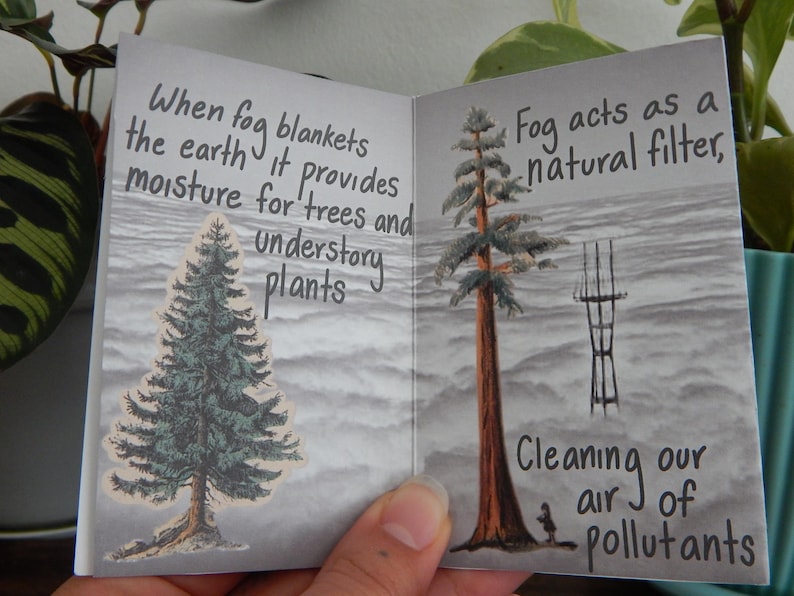 When fog blankets
the earth it provides
moisture for trees and
understory
plants
Fog acts as a
natural filter,
Cleaning our
air of
pollutants